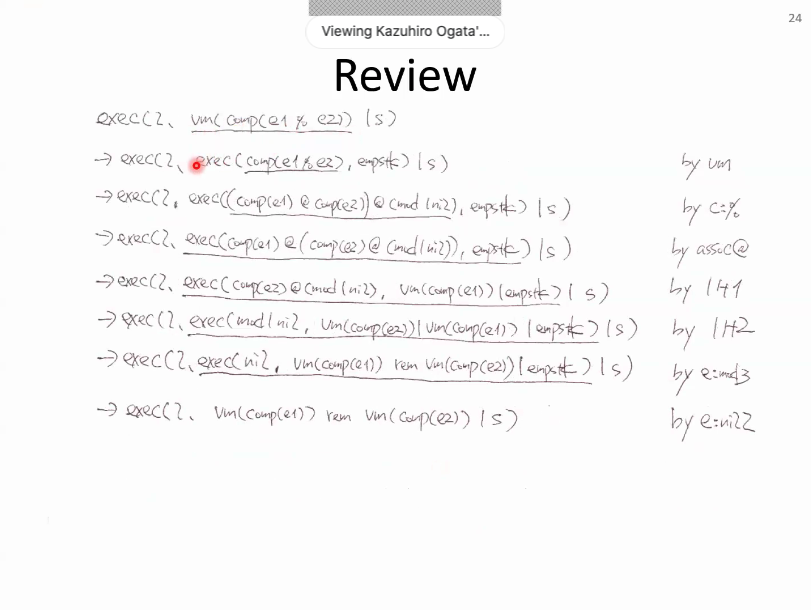 24
Viewing Kazuhiro Ogata'...
Review
exec(l, vm(comp(e1 % e2)) | s)
→ exec(l, exec(comp(e1 % e2), empstk) | s) by vm
→ exec(l, exec((comp(e1) @ comp(e2)) @ (mod | nil), empstk) | s) by c:%
→ exec(l, exec(comp(e1) @ (comp(e2) @ (mod | nil)), empstk) | s) by assoc@
→ exec(l, exec(comp(e2) @ (mod | nil), vm(comp(e1)) | empstk) | s) by IH1
→ exec(l, exec(mod | nil, vm(comp(e2)) | vm(comp(e1)) | empstk) | s) by IH2
→ exec(l, exec(nil, vm(comp(e1)) rem vm(comp(e2)) | empstk) | s) by e:mod3
→ exec(l, vm(comp(e1)) rem vm(comp(e2)) | s) by e:nil2